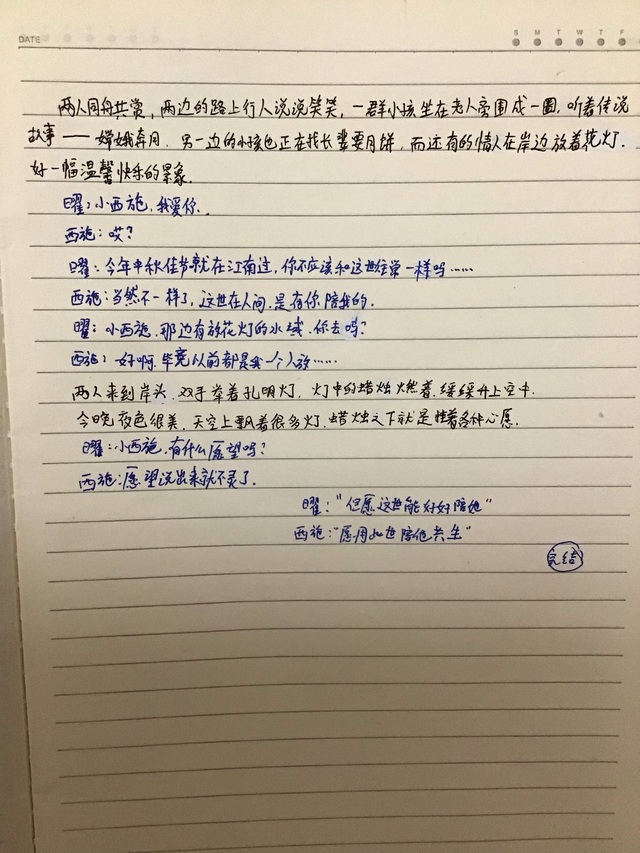 DATE
S M T W T F
两人同舟共赏，两边的路上行人说说笑笑，一群小孩坐在老人旁围成一圈，听着传说
故事——嫦娥奔月．另一边的小孩也正在找长辈要月饼，而还有的情人在岸边放着花灯．
好一幅温馨快乐的景象．
曜：小西施，我爱你．
西施：哎？
曜：今年中秋佳节就在江南过，你不应该和这世往常一样吗……
西施：当然不一样了，这世在人间．是有你陪我的．
曜：小西施．那边有放花灯的水域．你去吗？
西施：好啊．毕竟以前都是我一个人放……
两人来到岸头．双手举着孔明灯．灯中的蜡烛燃着．缓缓升上空中．
今晚夜色很美．天空上飘着很多灯．蜡烛之下就是着各种心愿．
曜：小西施．有什么愿望吗？
西施：愿望说出来就不灵了．
曜：“但愿这世能好好陪她”
西施：“愿用此世陪他共生”
完结